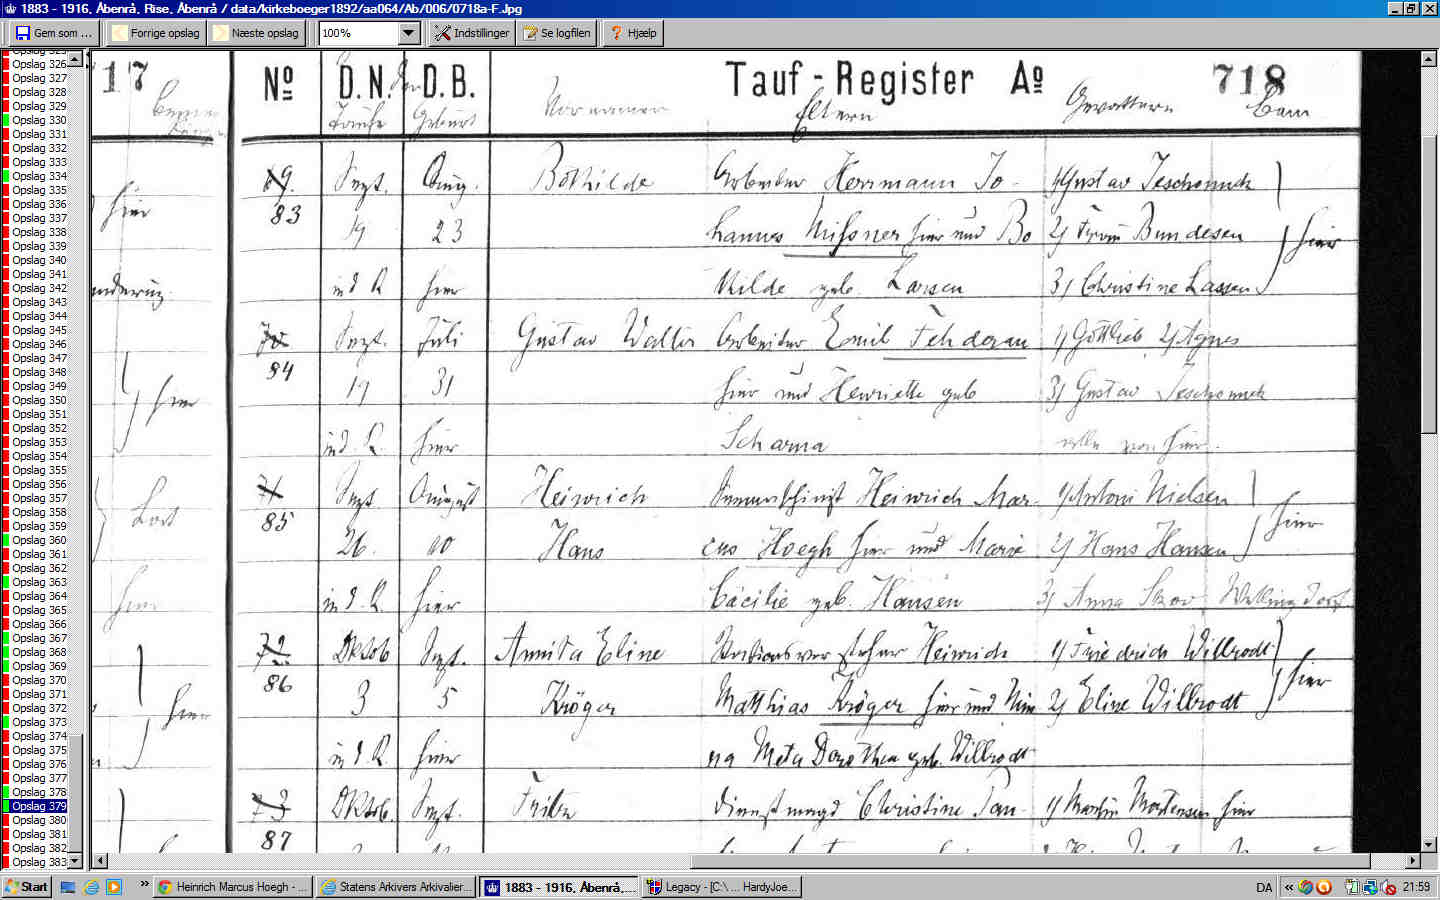 1883 - 1916, Åbenrå, Rise, Åbenrå / data/kirkeboeger1892/aa064/Ab/006/0718a-F.Jpg
Gem som ... Forrige opslag Næste opslag 100% Indstillinger Se logfilen Hjælp
Opslag 326
Opslag 327
Opslag 328
Opslag 329
Opslag 330
Opslag 331
Opslag 332
Opslag 333
Opslag 334
Opslag 335
Opslag 336
Opslag 337
Opslag 338
Opslag 339
Opslag 340
Opslag 341
Opslag 342
Opslag 343
Opslag 344
Opslag 345
Opslag 346
Opslag 347
Opslag 348
Opslag 349
Opslag 350
Opslag 351
Opslag 352
Opslag 353
Opslag 354
Opslag 355
Opslag 356
Opslag 357
Opslag 358
Opslag 359
Opslag 360
Opslag 361
Opslag 362
Opslag 363
Opslag 364
Opslag 365
Opslag 366
Opslag 367
Opslag 368
Opslag 369
Opslag 370
Opslag 371
Opslag 372
Opslag 373
Opslag 374
Opslag 375
Opslag 376
Opslag 377
Opslag 378
Opslag 379
Opslag 380
Opslag 381
Opslag 382
Opslag 383
17 No D.N. D.B. Tauf-Register Ao 718
Taufe Geburt Vornamen Eltern Gevattern
69. Sept. Aug. Bothilde Arbeiter Herrmann Jo- 1) Gustav Jeschonnek
83 19 23 hannes Missner hier und Bo 2) Bundesen hier
in d K hier thilde geb Larsen 3) Christine Lassen
70 Sept. Juli Gustav Walter Arbeiter Emil Fehderau 1) Gottlieb 2) Agnes
84 19 31 hier und Henriette geb 3) Gustav Jeschonnek
in d. K. hier Scharma alle von hier.
71 Sept August Heinrich Heinrich Mar- 1) Antoni Nielsen
85 26. 10 Hans cus Hoegh hier und Marie 2) Hans Hansen hier
in d. K. hier Cäcilie geb. Hansen 3) Anna Skov
72 Oktob Sept. Annita Eline Stationsvorsteher Heinrich 1) Friedrich Willrodt
86 3 5 Kröger Matthias Kröger hier und Min 2) Eline Willrodt hier
in d. K. hier na Meta Dorothea geb. Willrodt
73 Oktob. Sept. Dienstmagd Christine 1) Martin Mortensen hier
87
Start Heinrich Marcus Hoegh - ... Statens Arkivers Arkivalier... 1883 - 1916, Åbenrå,... Legacy - [C:\ ... HardyJoe... DA 21:59